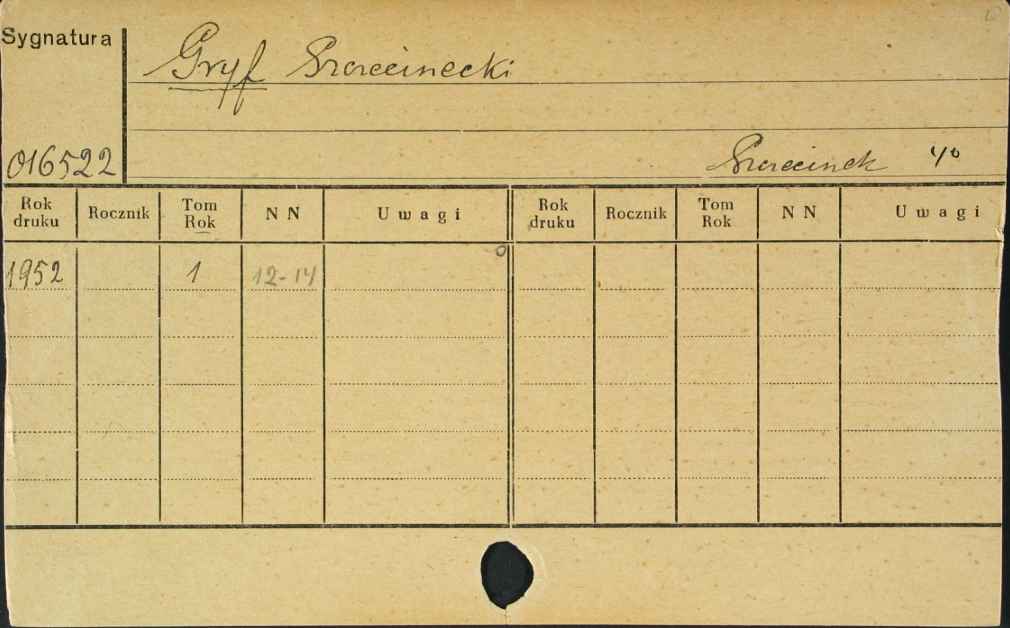 Sygnatura
Gryf Szczecinecki
016522
Szczecinek 4°
Rok druku Rocznik Tom Rok N N Uwagi Rok druku Rocznik Tom Rok N N Uwagi
1952 1 12-14